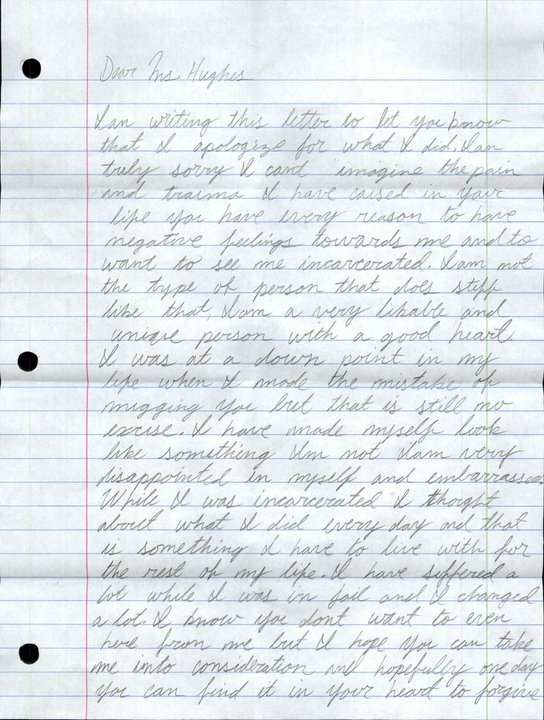 Dear Ms. Hughes
I am writing this letter to let you know
that I apologize for what I did. I am
truly sorry I cant imagine the pain
and trauma I have caised in your
life you have every reason to have
negative feelings towards me and to
want to see me incarcerated. I am not
the type of person that does stiff
like that, I am a very likable and
unique person with a good heart
I was at a down point in my
life when I made the mistake of
mugging you but that is still no
excise. I have made myself look
like something Im not I am very
disappointed in myself and embarrassed
While I was incarcerated I thoight
about what I did every day and that
is something I have to live with for
the rest of my life. I have siffered a
lot while I was in jail and I changed
a lot. I know you dont want to even
here from me but I hope you can take
me into consideration and hopefully one day
you can find it in your heart to forgive